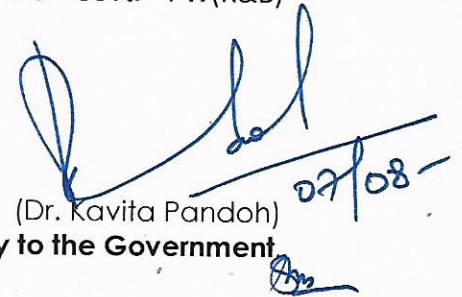 (R&B)
07/08-
(Dr. Kavita Pandoh)
y to the Government